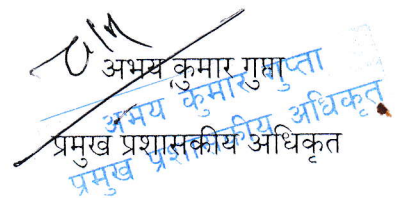 अभय कुमार गुप्ता
अभय कुमार गुप्ता
प्रमुख प्रशासकीय अधिकृत
प्रमुख प्रशासकीय अधिकृत